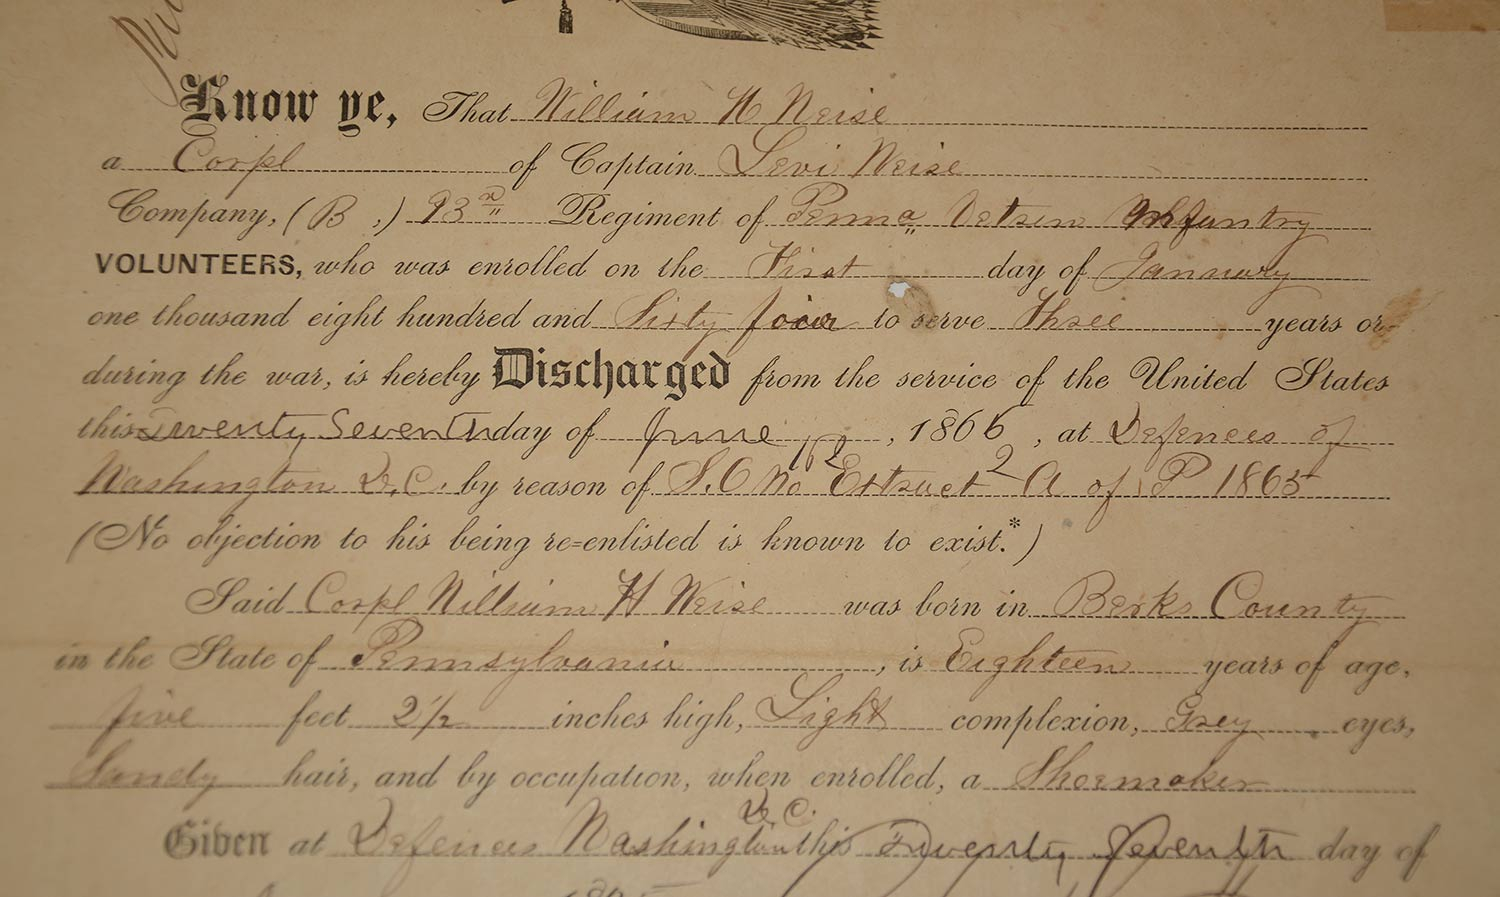 Know ye, That William H Weise
a Corpl of Captain Levi Weise
Company, (B,) 93rd Regiment of Penna Vetren Infantry
VOLUNTEERS, who was enrolled on the First day of January
one thousand eight hundred and Sixty four to serve Three years or
during the war, is hereby Discharged from the service of the United States
this Twenty Seventh day of June, 1865, at Defences of
Washington D.C. by reason of S.O No 162 Extract 2 A of P 1865
(No objection to his being re-enlisted is known to exist.*)
Said Corpl William H Weise was born in Berks County
in the State of Pennsylvania, is Eighteen years of age,
five feet 2 1/2 inches high, Light complexion, Grey eyes,
Sandy hair, and by occupation, when enrolled, a Shoemaker
Given at Defences Washington D.C. this Twenty Seventh day of